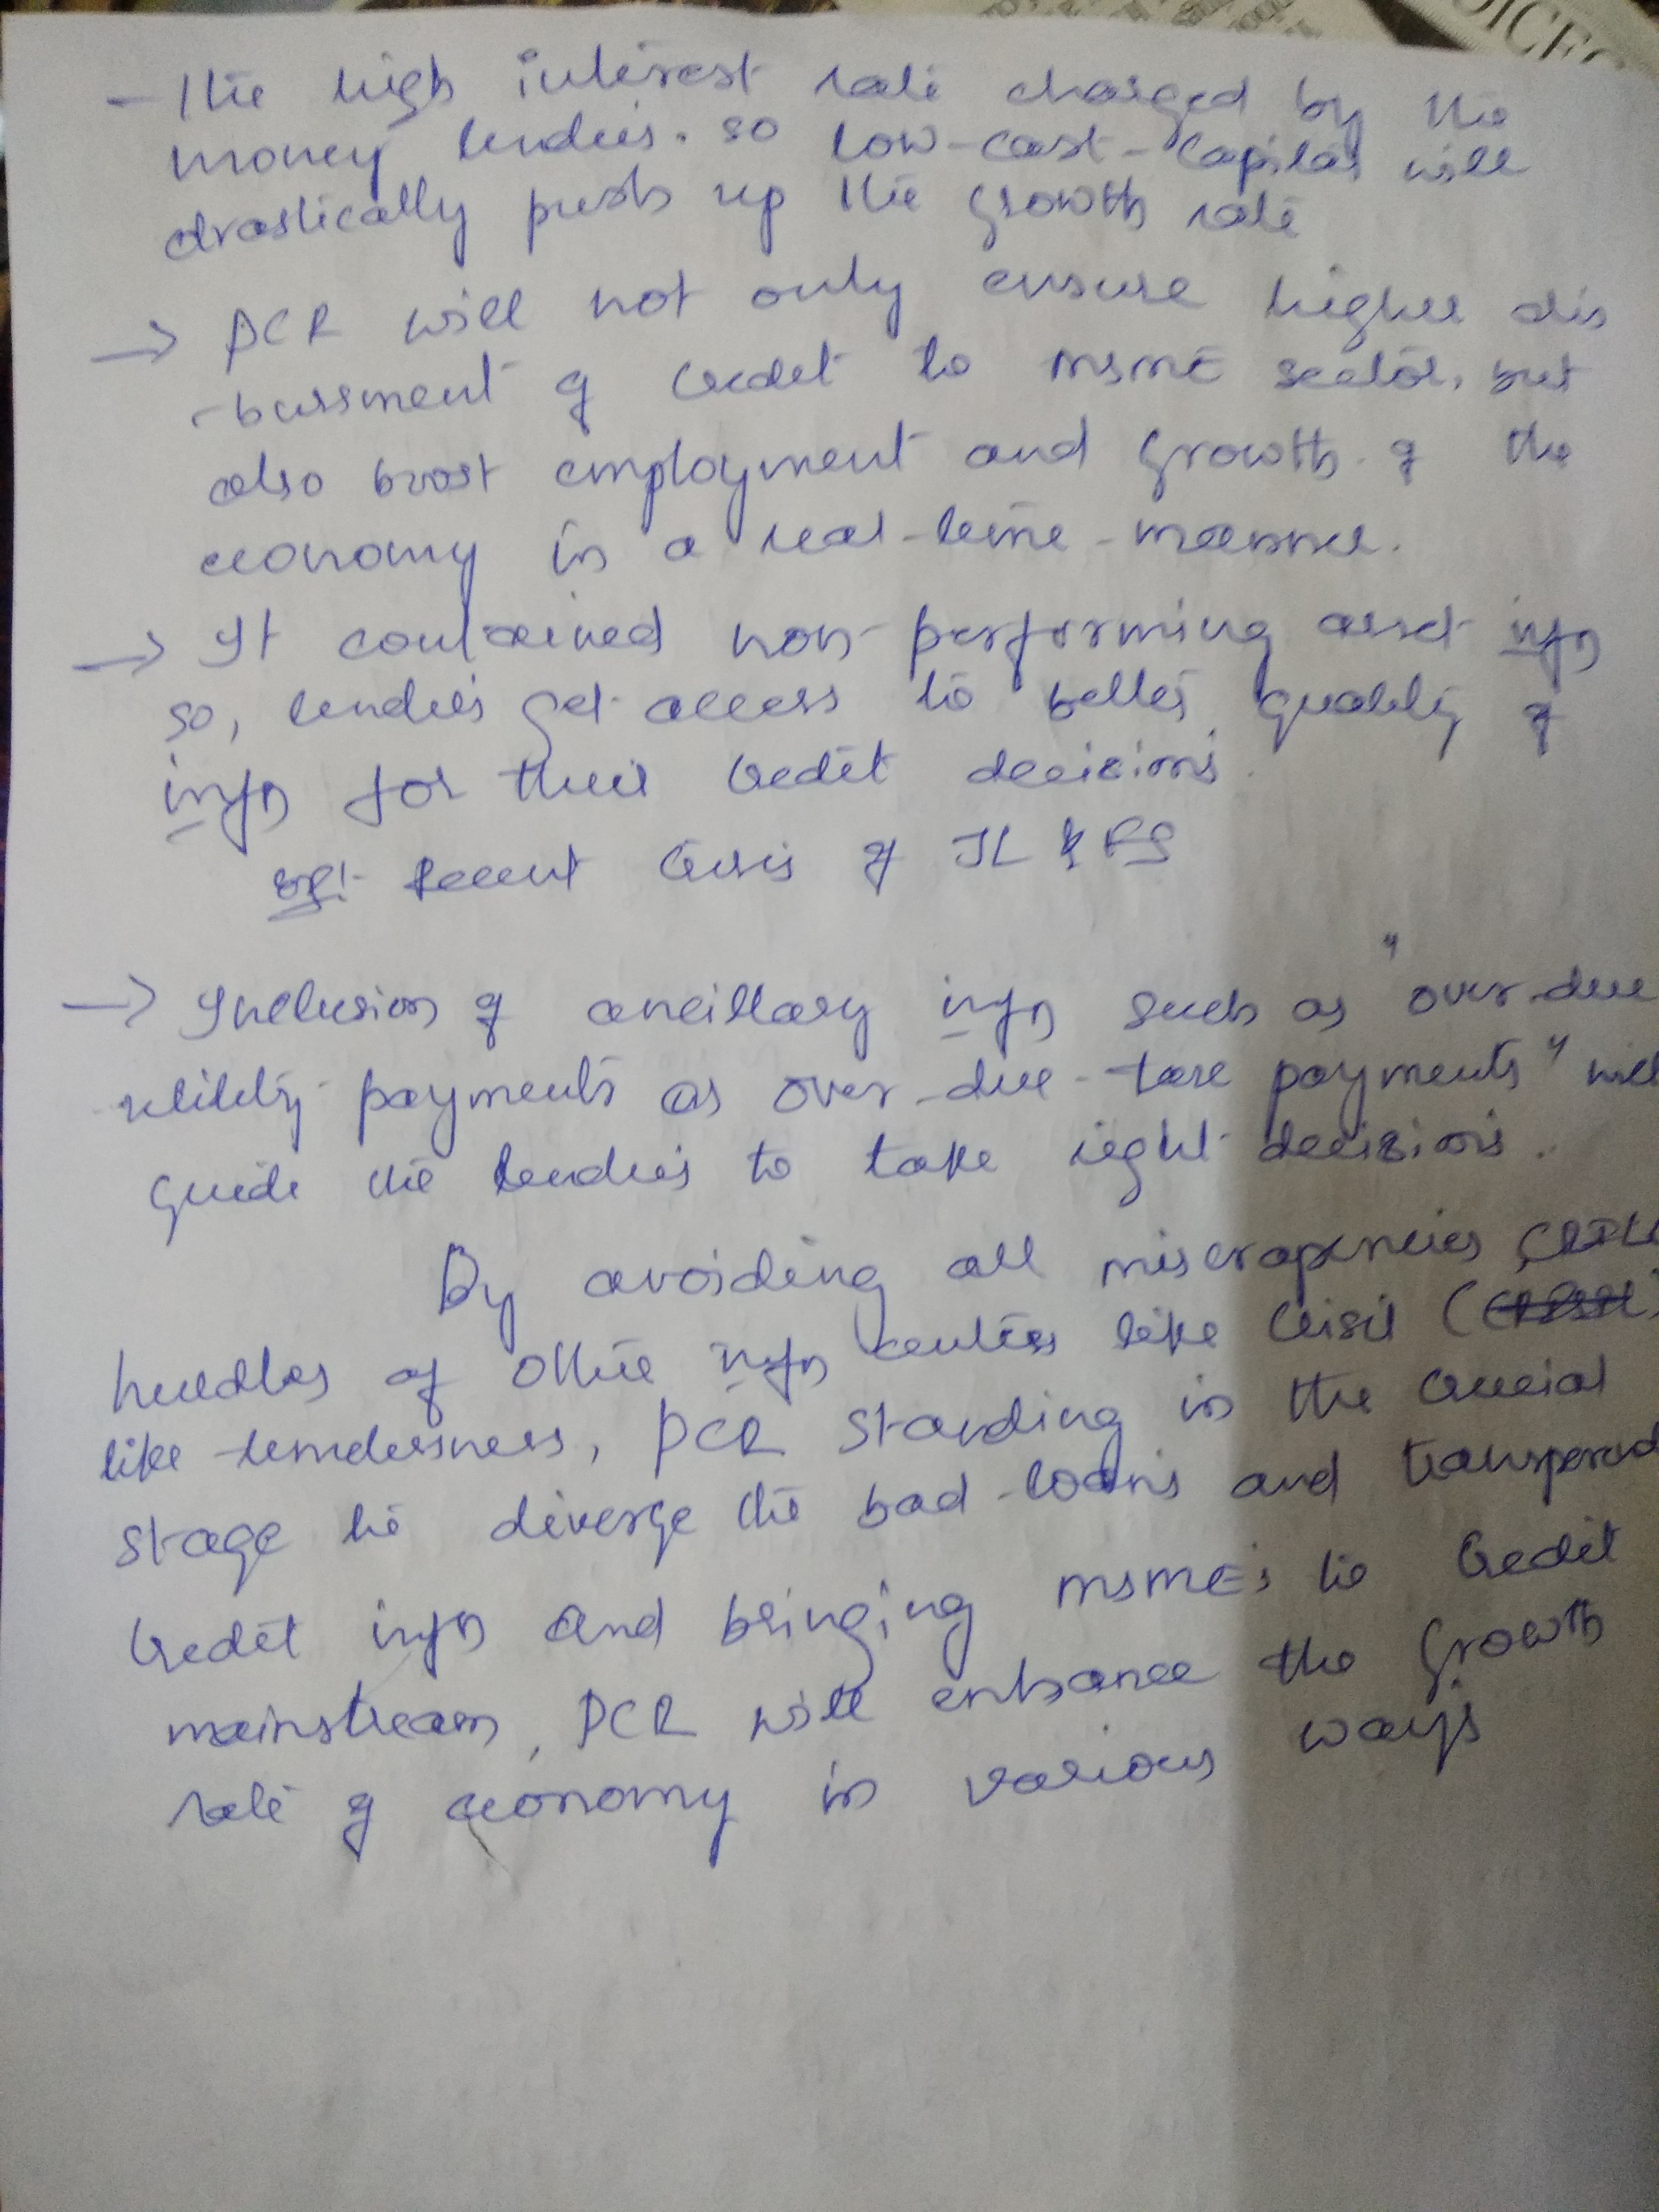 OICES
- The high interest rate charged by the
money lenders. so low-cost-capital will
drastically push up the growth rate
→ PCR will not only ensure higher dis
-bursment of credit to MSME sector, but
also boost employment and growth of the
economy in a real-time-manner.
→ It contained non-performing asset infn
so, lenders get access to better quality of
infn for their credit decisions.
Recent Crisis of IL & FS
→ Inclusion of ancillary infn such as "over-due
utility payments as over-due-taxe payments" will
guide the lenders to take right decisions.
By avoiding all miscrapencies
hurdles of other infn centers like Crisil (
like -temelessness, PCR standing in the crucial
stage to diverge the bad-loans and transperend
credit infn and bringing MSME's to credit
mainstream, PCR will enhance the growth
rate of economy in various ways